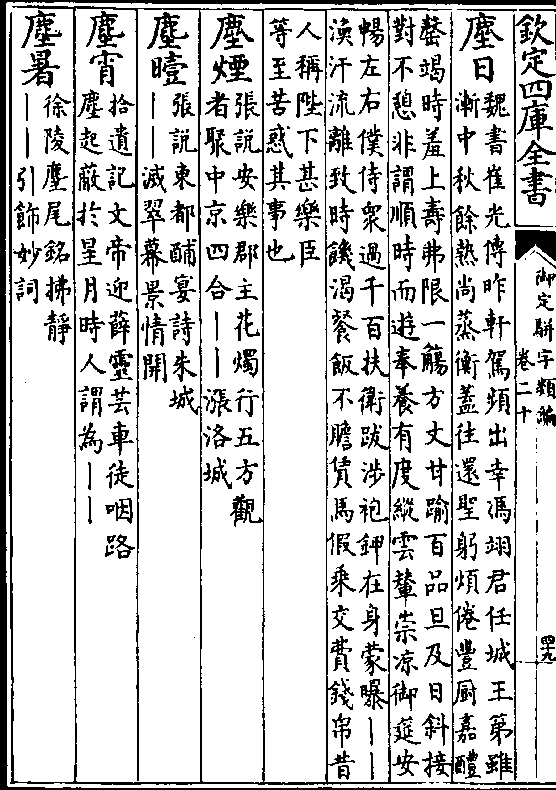 欽定四庫全書
御定駢字類編
卷二十
四十九
塵日
魏書崔光傳昨軒駕頻出幸馮翊君任城王第雖
漸中秋餘熱尚蒸衡蓋往還聖躬煩倦豐厨嘉醴
罄竭時羞上壽弗限一觴方丈甘踰百品旦及日斜接
對不憩非謂順時而遊奉養有度縱雲輦崇凉御筵安
暢左右僕侍衆過千百扶衛跋涉袍鉀在身蒙曝——
渙汗流離致時饑渇餐飯不贍賃馬假乘交費錢帛昔
人稱陛下甚樂臣
等至苦惑其事也
塵煙
張説安樂郡主花燭行五方觀
者聚中京四合——漲洛城
塵曀
張説東都酺宴詩朱城
——滅翠幕景情開
塵宵
拾遺記文帝迎薛靈芸車徒咽路
塵起蔽於星月時人謂為——
塵暑
徐陵麈尾銘拂靜
——引飾妙詞